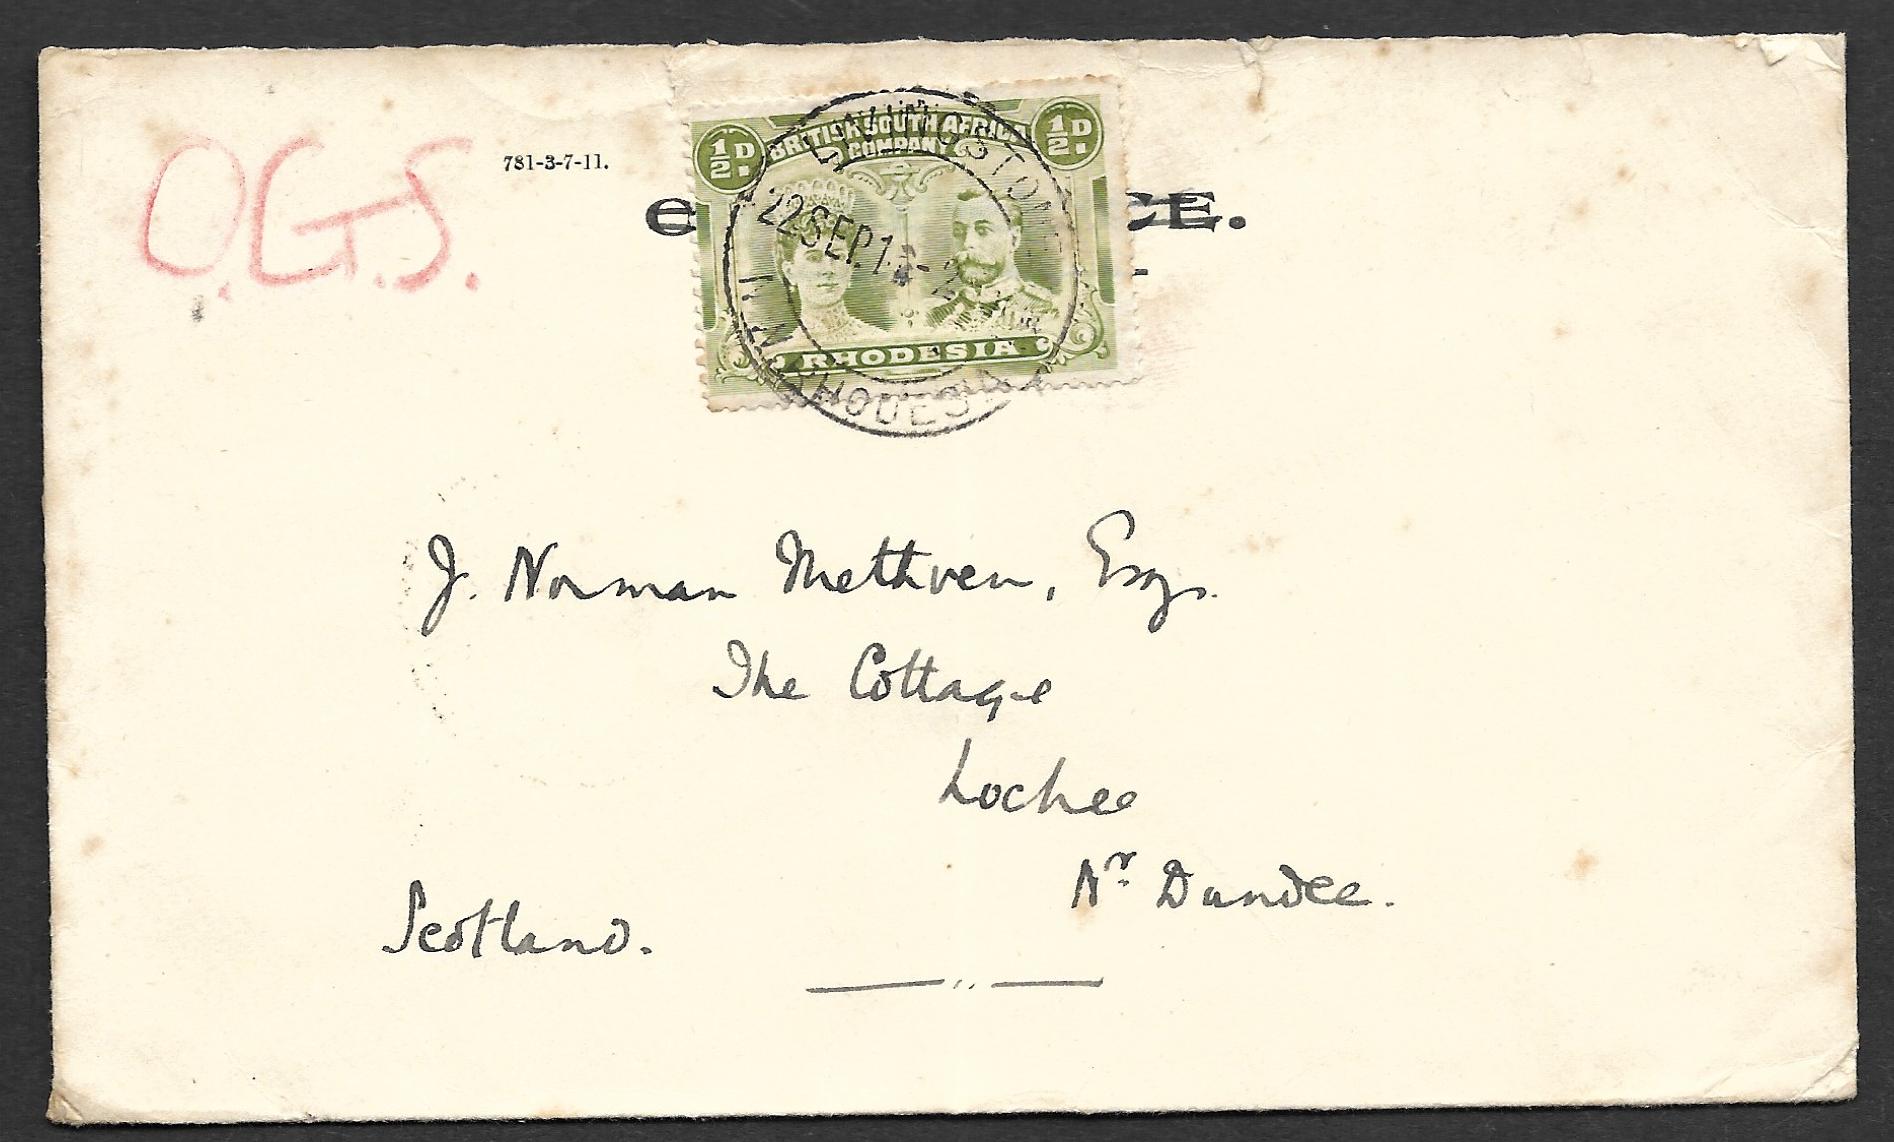 O.G.S.
781-3-7-11.
CE.
½D. BRITISH SOUTH AFRICA ½D.
COMPANY
RHODESIA
LIVINGSTONE
22 SEP. 1
N.W. RHODESIA
J. Norman Methven, Esq.
The Cottage
Lochee
Nr. Dundee.
Scotland.